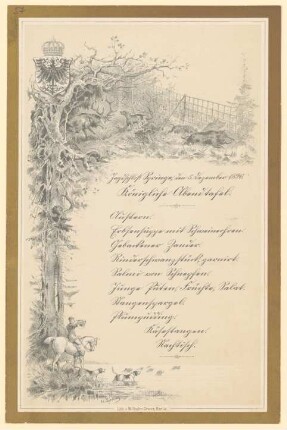 Jagdschloß Springe, den 5. Dezember 1896
Königliche Abendtafel.
Austern.
Erbsensuppe mit Schweinsohren
Gebackener Zander.
Rinderschwanzstück garnirt.
Salmi von Schnepfen.
Junge Puten, Früchte, Salat.
Stangenspargel.
Plumpudding.
Käsestangen.
Nachtisch.